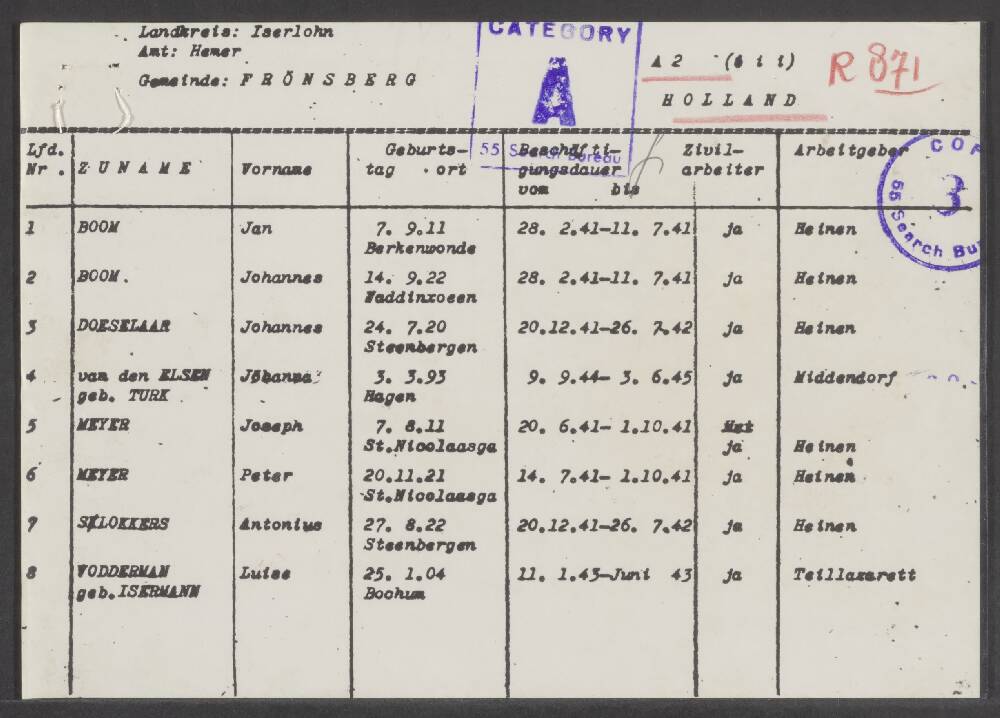 Landkreis: Iserlohn
Amt: Hemer
Gemeinde: FRÖNSBERG
CATEGORY
A
55 Search Bureau
A 2 (
HOLLAND
R 871
COPY
3
55 Search Bu
Lfd. Nr. ZUNAME Vorname Geburts- tag ort Beschäfti- gungsdauer vom bis Zivil- arbeiter Arbeitgeber
1 BOOM Jan 7. 9.11 28. 2.41-11. 7.41 ja Heinen
Berkenwonde
2 BOOM. Johannes 14. 9.22 28. 2.41-11. 7.41 ja Heinen
Waddinxoeen
3 DOESELAAR Johannes 24. 7.20 20.12.41-26. 7.42 ja Heinen
Steenbergen
4 van den ELSEN Johanna 3. 3.93 9. 9.44- 3. 6.45 ja Middendorf
geb. TURK Hagen
5 MEYER Joseph 7. 8.11 20. 6.41- 1.10.41
St.Nicolaasga ja Heinen
6 MEYER Peter 20.11.21 14. 7.41- 1.10.41 ja Heinen
St.Nicolaasga
7 SLOKKERS Antonius 27. 8.22 20.12.41-26. 7.42 ja Heinen
Steenbergen
8 VODDERMAN Luise 25. 1.04 11. 1.43-Juni 43 ja Teillazarett
geb.ISERMANN Bochum